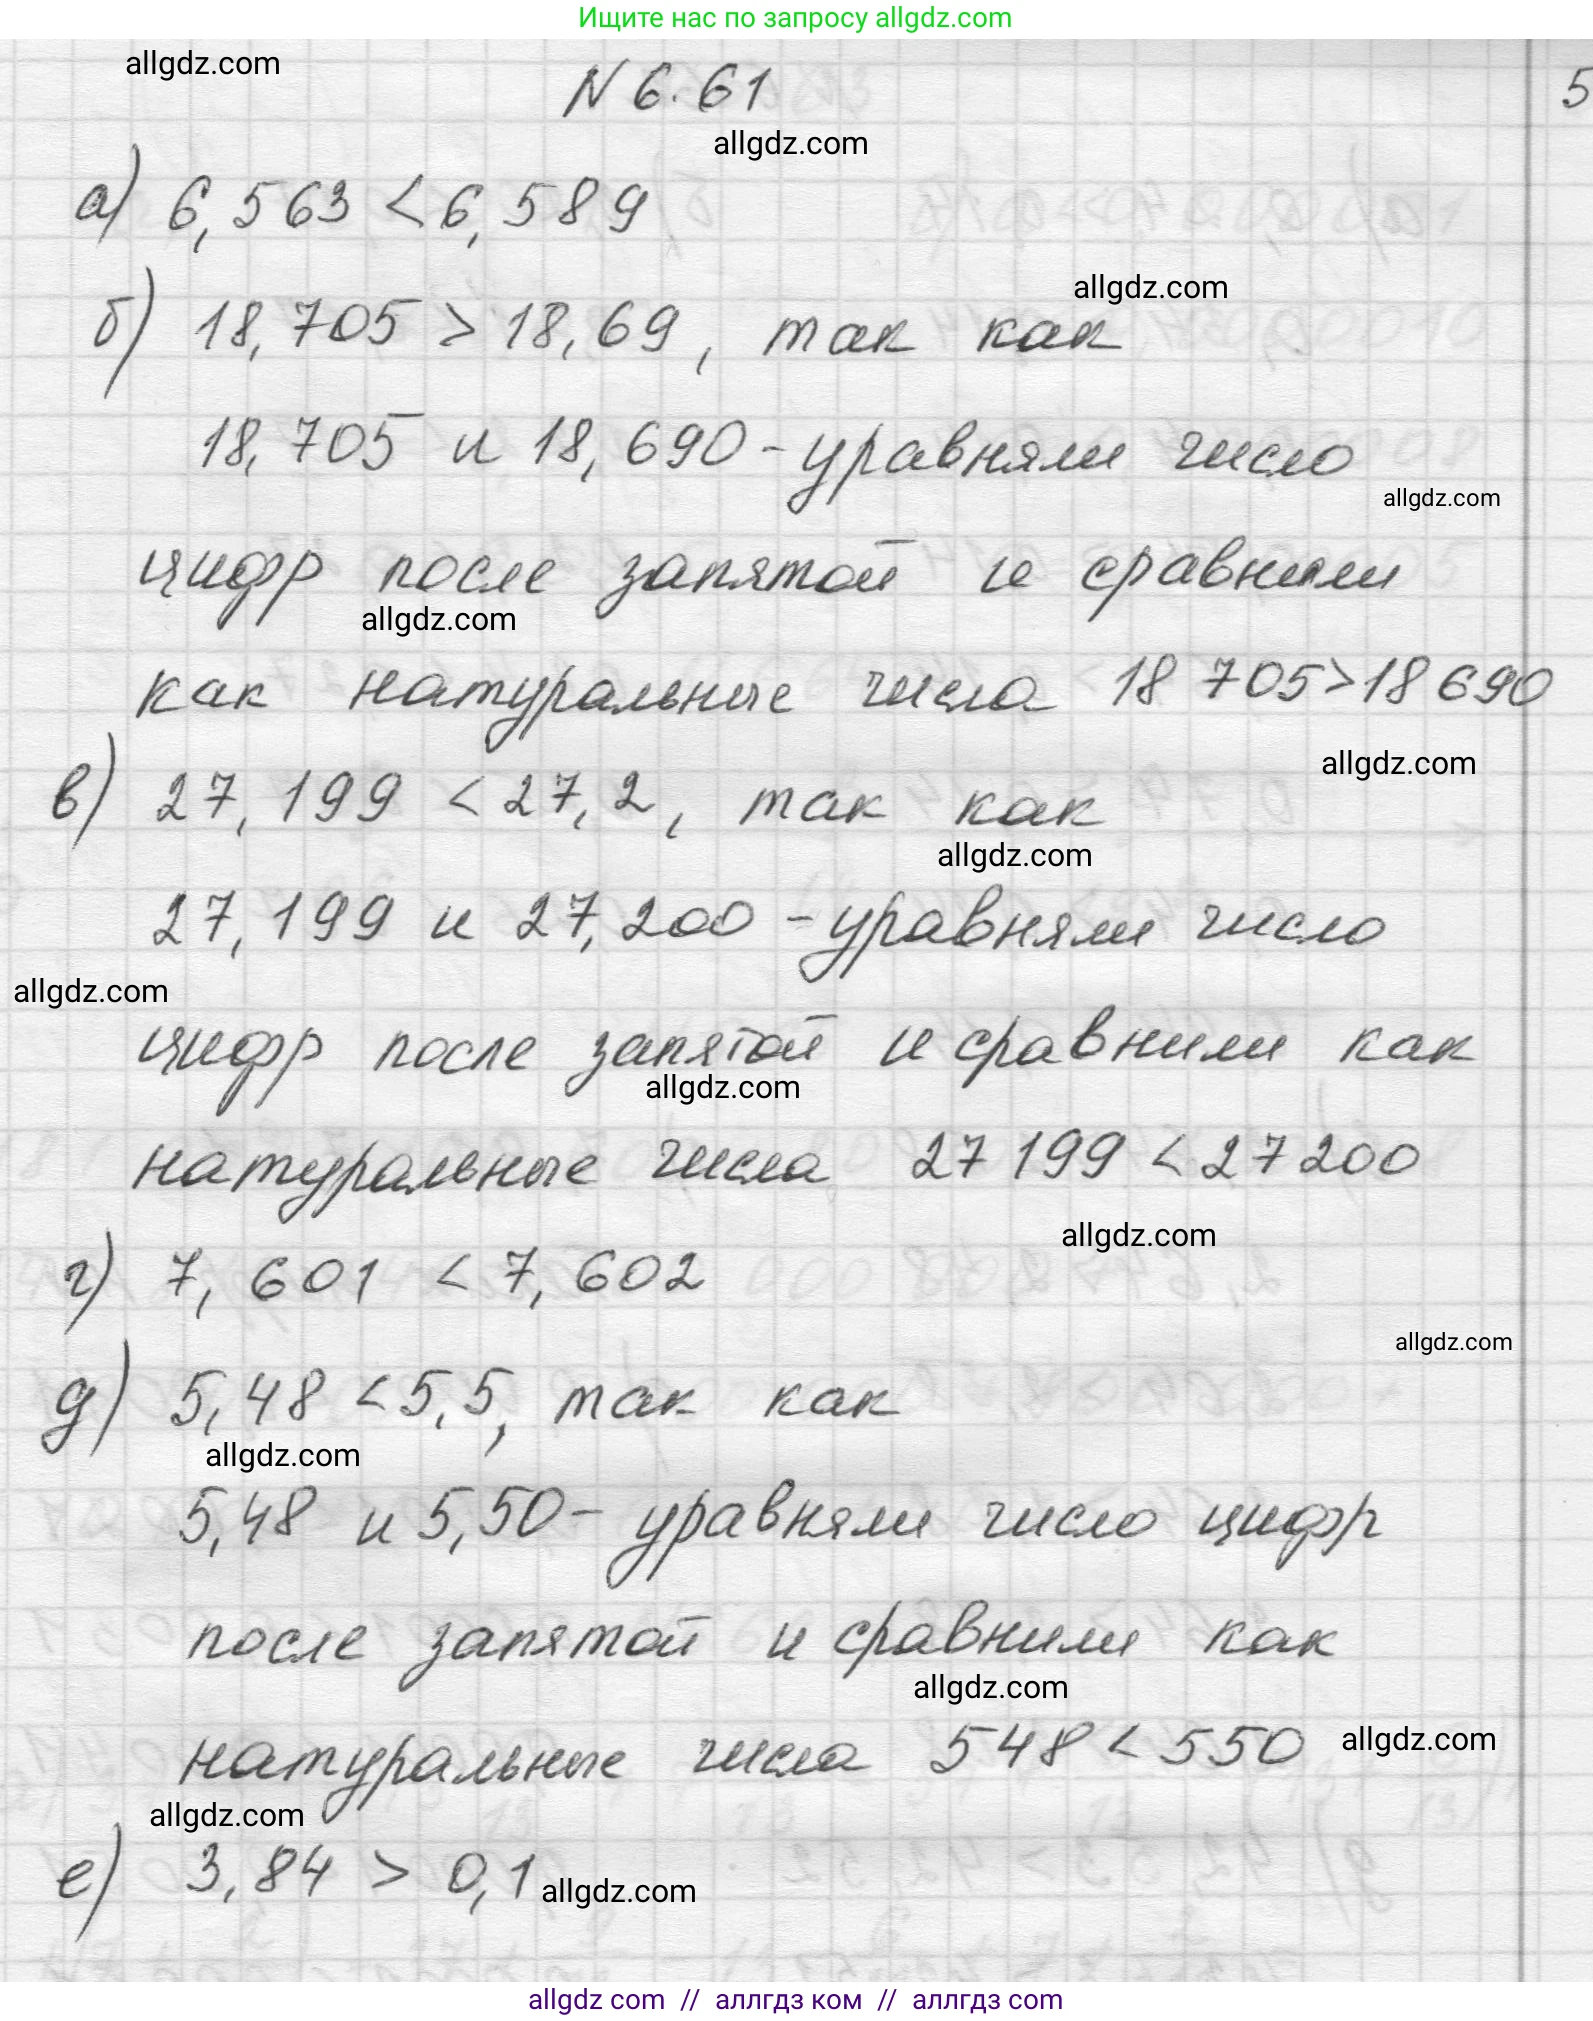 Ищите нас по запросу allgdz.com
allgdz.com
N 6.61
5
allgdz.com
а) 6,563 < 6,589
allgdz.com
б) 18,705 > 18,69, так как
18,705 и 18,690 - уравняли число
allgdz.com
цифр после запятой и сравнили
allgdz.com
как натуральные числа 18 705 > 18 690
allgdz.com
в) 27,199 < 27,2, так как
allgdz.com
27,199 и 27,200 - уравняли число
allgdz.com
цифр после запятой и сравнили как
allgdz.com
натуральные числа 27 199 < 27 200
allgdz.com
г) 7,601 < 7,602
allgdz.com
д) 5,48 < 5,5, так как
allgdz.com
5,48 и 5,50 - уравняли число цифр
после запятой и сравнили как
allgdz.com
натуральные числа 548 < 550
allgdz.com
allgdz.com
е) 3,84 > 0,1
allgdz.com
allgdz com // аллгдз ком // аллгдз com